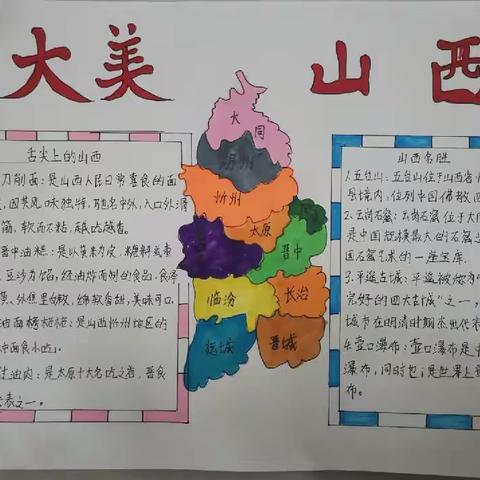 大美 山西
舌尖上的山西
刀削面：是山西人民日常喜食的面
食，因其风味独特，驰名中外，入口外滑
筋，软而不粘，越吃越香。
晋中油糕：是以黄米为皮，糖料或枣
、豆沙为馅，经油炸而制的食品，色泽
黄，外焦里嫩，绵软香甜，美味可口。
莜面栲栳栳：是山西忻州地区的
种面食小吃。
过油肉：是太原十大名吃之首，晋食
代表之一。
大同
朔州
忻州
太原
晋中
临汾
长治
运城
晋城
山西名胜
1.五台山：五台山位于山西省忻
县境内，位列中国佛教四
2.云冈石窟：云冈石窟位于大同
是中国规模最大的石窟之
国石窟艺术的一座宝库。
3.平遥古城：平遥被称为“
完好的四大古城”之一，
城市在明清时期杰出代表
4.壶口瀑布：壶口瀑布是中
瀑布，同时也是世界上
布。